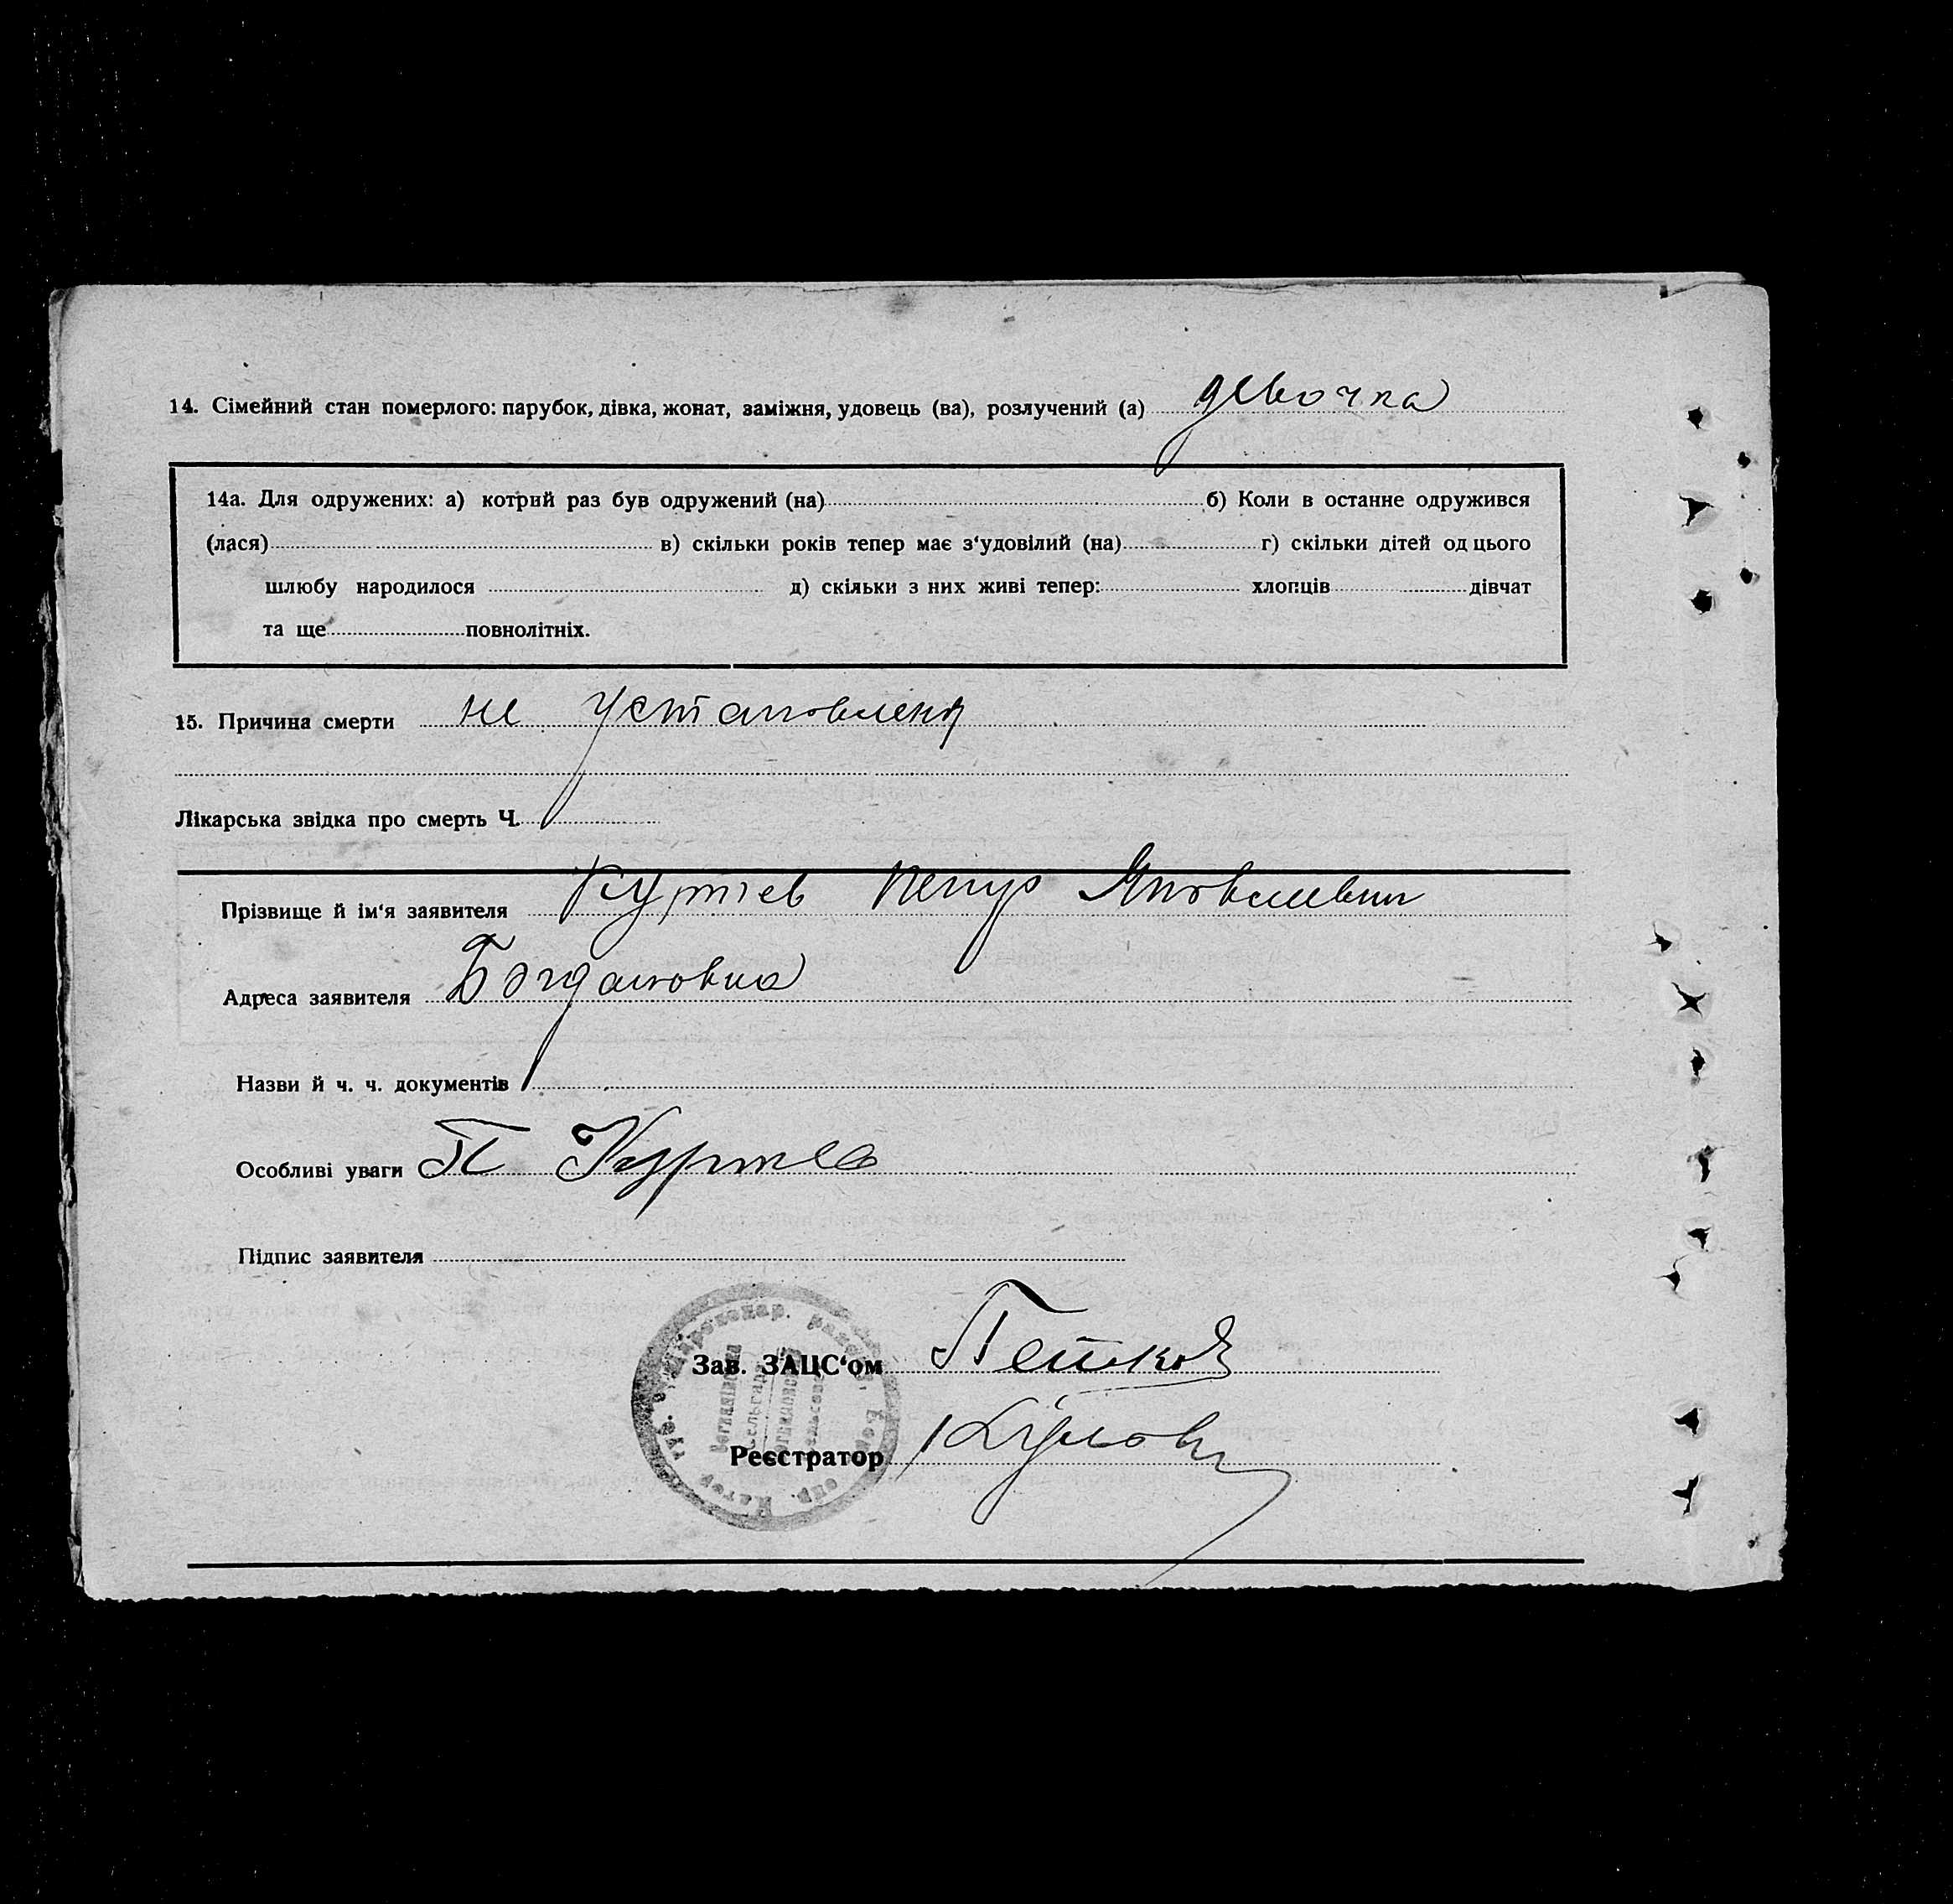 14. Сімейний стан померлого: парубок, дівка, жонат, заміжня, удовець (ва), розлучений (а) девочка
14а. Для одружених: а) котрий раз був одружений (на) б) Коли в останне одружився
(лася) в) скільки років тепер має з‘удовілий (на) г) скільки дітей од цього
шлюбу народилося д) скільки з них живі тепер: хлопців дівчат
та ще повнолітніх.
15. Причина смерти не установлена
Лікарська звідка про смерть Ч.
Прізвище й ім‘я заявителя Куртев Петр Яковлевич
Адреса заявителя Богдановка
Назви й ч. ч. документів
Особливі уваги П Куртев
Підпис заявителя
Зав. ЗАЦС‘ом Петков
Реєстратор